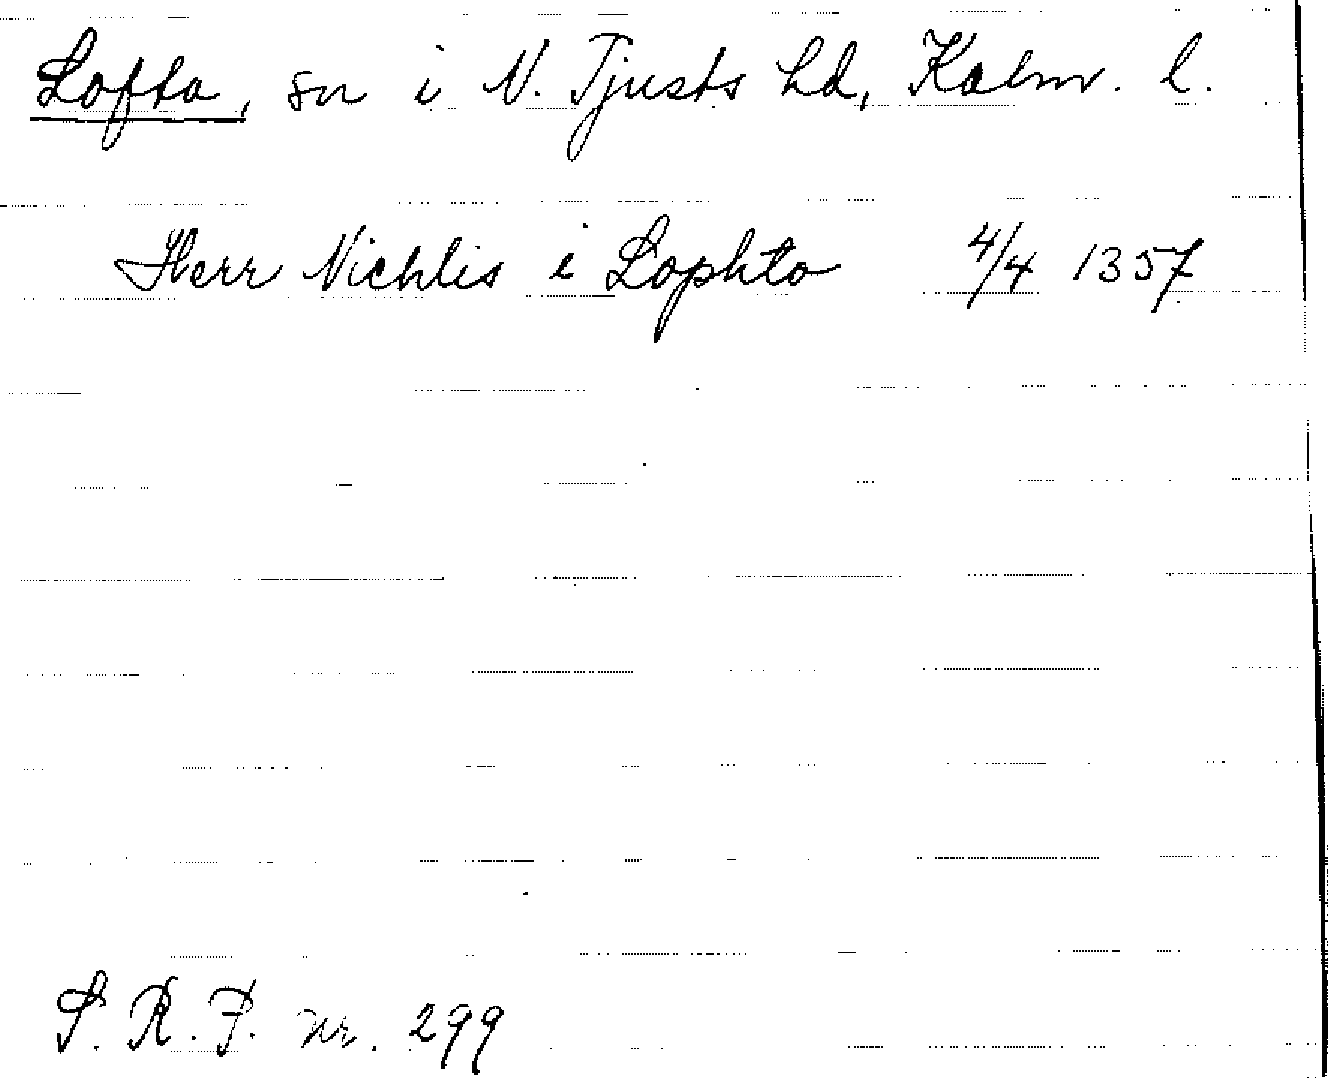 Lofta, sn i N. Tjusts hd, Kalm. l.
Herr Nichlis i Lophto 4/4 1357
S. R. P. nr. 299